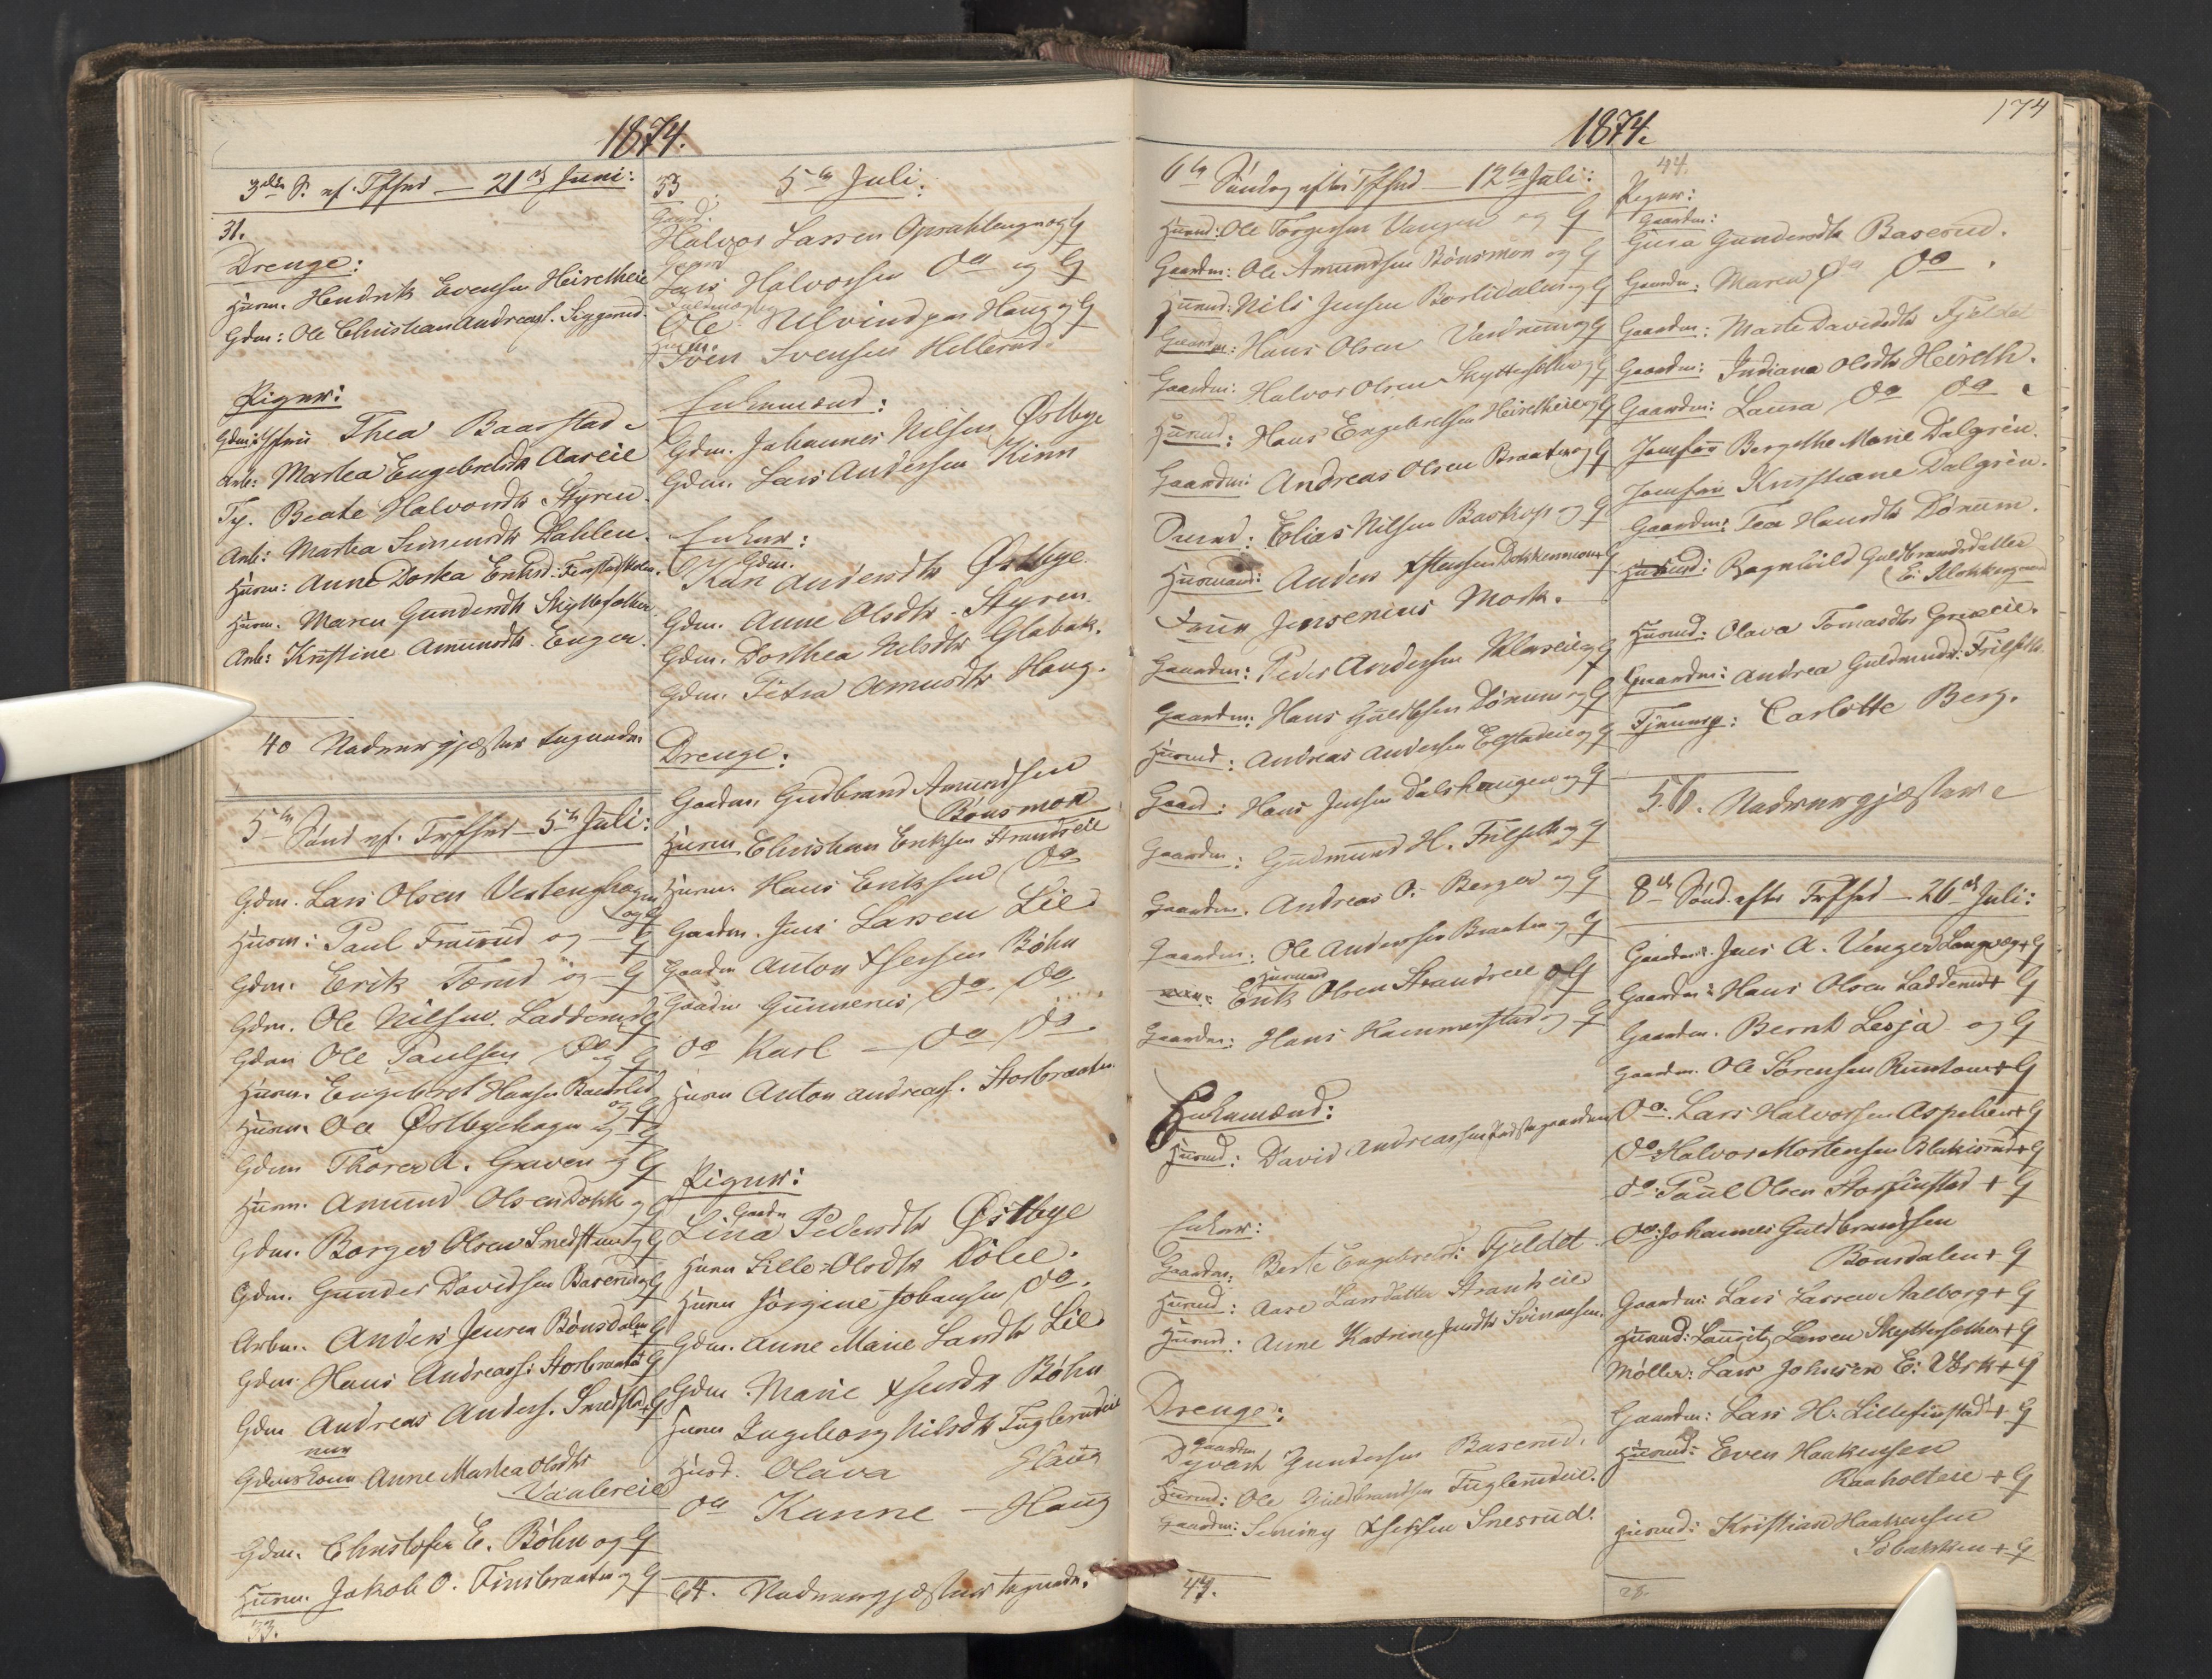 1874.
3die S. ef. Tfhed — 21de Juni:
31.
Drenge:
Husm. Hendrik Evensen Heiretheie
Gdm: Ole Christian Andreas.
Piger:
Gdm: Thea Baarstad
Arb: Martea Engebretsdtr Aaseie
Tj. Beate Halvorsdtr Styren
Arb: Martea Simensdtr Dahlen.
Husm: Anne Dortea Eriksd:
Husm. Maren Gundersdtr
Arb: Kristine Amundsdtr Engen.
40 Nadvergjæster
5te Sønd ef. Trefhed — 5te Juli:
Gdm. Lars Olsen
og G
Husm: Paul og — G
Gdm. Erik og — G
Gdm. Ole Nilsen Ladderud G
Gdm Ole Paulsen Do og G
Husm. Engebret Hansen
og G
Husm. Ole Østbyehagen og G
Gdm Thorer A. Graven og G
Husm. Amund Olsen Dokk og G
Gdm. Borger Olsen og G
Gdm. Gunder Davidsen Baserud og G
Arbm. Anders Jensen Bönsdalen + G
Gdm. Hans Andreas: Storbraaten G
Gdm Andreas Anders. + G
Gdmskone Anne Martea Olsdtr
Gdm. Christofer E. Böhn og G
Husm. Jakob O. Finsbraaten og G
33.
33
5te Juli.
Gaard.
Halvor Larsen Opsahl og G
Gaard
Lars Halvorsen Do og G
Ole Haug og G
Husm.
Sven Svensen Hellerud.
Enkemænd:
Gdm. Johannes Nilsen Østbye
Gdm. Lars Andersen Kinn
Enker:
Gdm.
Kari Andersdtr Østbye.
Gdm. Anne Olsdtr Styren.
Gdm. Dorthea Nilsdtr Glabak.
Gdm. Petra Amundsdtr Haug.
Drenge:
Gaardm. Gudbrand Amundsen
Bönsmoen
Husm. Christian Eriksen Strandseie
Husm. Hans Eriksen Do
Gaardm. Jens Larsen Lie
Gaardm Anton Böhn
Gaardm Gunnerius Do Do
Do Karl — Do Do
Husm Anton Andreas. Storbraaten
Piger:
Gaardm
Lina Pedersdtr Østbye
Husm Lille Olsdtr
Husm Jörgine Johansen Do.
Gdm. Anne Marie Larsdtr Lie
Gdm. Marie Böhn
Husm Ingeborg Nilsdtr Fuglerudeie
Husd. Olava Haug
Do Kanne — Haug
64. Nadvergjæster
1874.
174
6te Søndag efter Tfhed — 12te Juli:
Husmd: Ole Torgersen Vangen og G
Gaardm: Ole Amundsen Bönsmoen og G
Husmd: Nils Jensen Borlidalen og G
Gaardm: Hans Olsen og G
Gaardm: Halvor Olsen og G
Husmd: Hans Engebretsen Heiretheie og G
Gaardm: Andreas Olsen Braaten og G
Elias Nilsen Baskop og G
Husmand: Anders Dokkenmoen + G
Jensenius Mork.
Gaardm: Peder Andersen og G
Gaardm: Hans Guldbsen Dönnum og G
Husmd: Andreas Andersen og G
Gaard: Hans Jensen Dalshaugen og G
Gaardm: Gudmund H. Frilseth og G
Gaardm. Andreas O. Berger og G
Gaardm: Ole Andersen Braaten og G
Husmand
Erik Olsen Strandseie og G
Gaardm: Hans Hammerstad og G
Enkemænd:
Husmd: David Andreassen
Enker:
Gaardm: Berte Engebretsd: Fjeldet
Husmd: Aase Larsdatter Strandseie
Husmd: Anne Katrine Jensdtr
Drenge:
Gaardm
Gundersen Baserud.
Husmd: Ole Guldbrandsen Fuglerudeie.
Gaardm: Snesrud.
47.
44.
Piger:
Gaardm:
Gina Gundersdtr Baserud.
Gaardm: Maren Do Do.
Gaardm: Marte Davidsdtr Fjeldet
Gaardm: Indiana Olsdtr Heireth.
Gaardm: Laura Do Do
Jomfru Bergethe Marie Dalgren.
Jomfru Kristiane Dalgren.
Gaardm: Tea Hansdtr Dönnum.
Husmd: Ragnhild Guldbrandsdatter
E: Klokkergaard
Husmd: Olava Tomasdtr
Gaardm: Andrea Gudmunds: Frilseth
Carlotte Berg.
56. Nadvergjæster
8de Sönd. efter Trefhed — 26de Juli:
Gaardm. Jens A. Venger + G
Gaardm: Hans Olsen Ladderud + G
Gaardm. Bernt Lesja og G
Gaardm. Ole Sörensen + G
Do. Lars Halvorsen Aspelien + G
Do: Halvor Mortensen + G
Do: Paul Olsen Storfinstad + G
Do: Johannes Guldbrandsen
Bönsdalen + G
Gaardm: Lars Larsen Aalborg + G
Husmd: Lauritz Larsen + G
Möller: Lars Johnsen E: Værk + G
Gaardm: Lars H. Lillefinstad + G
Husmd: Even Haakensen
Raaholteie + G
Husmd: Kristian Haakensen
+ G
28.